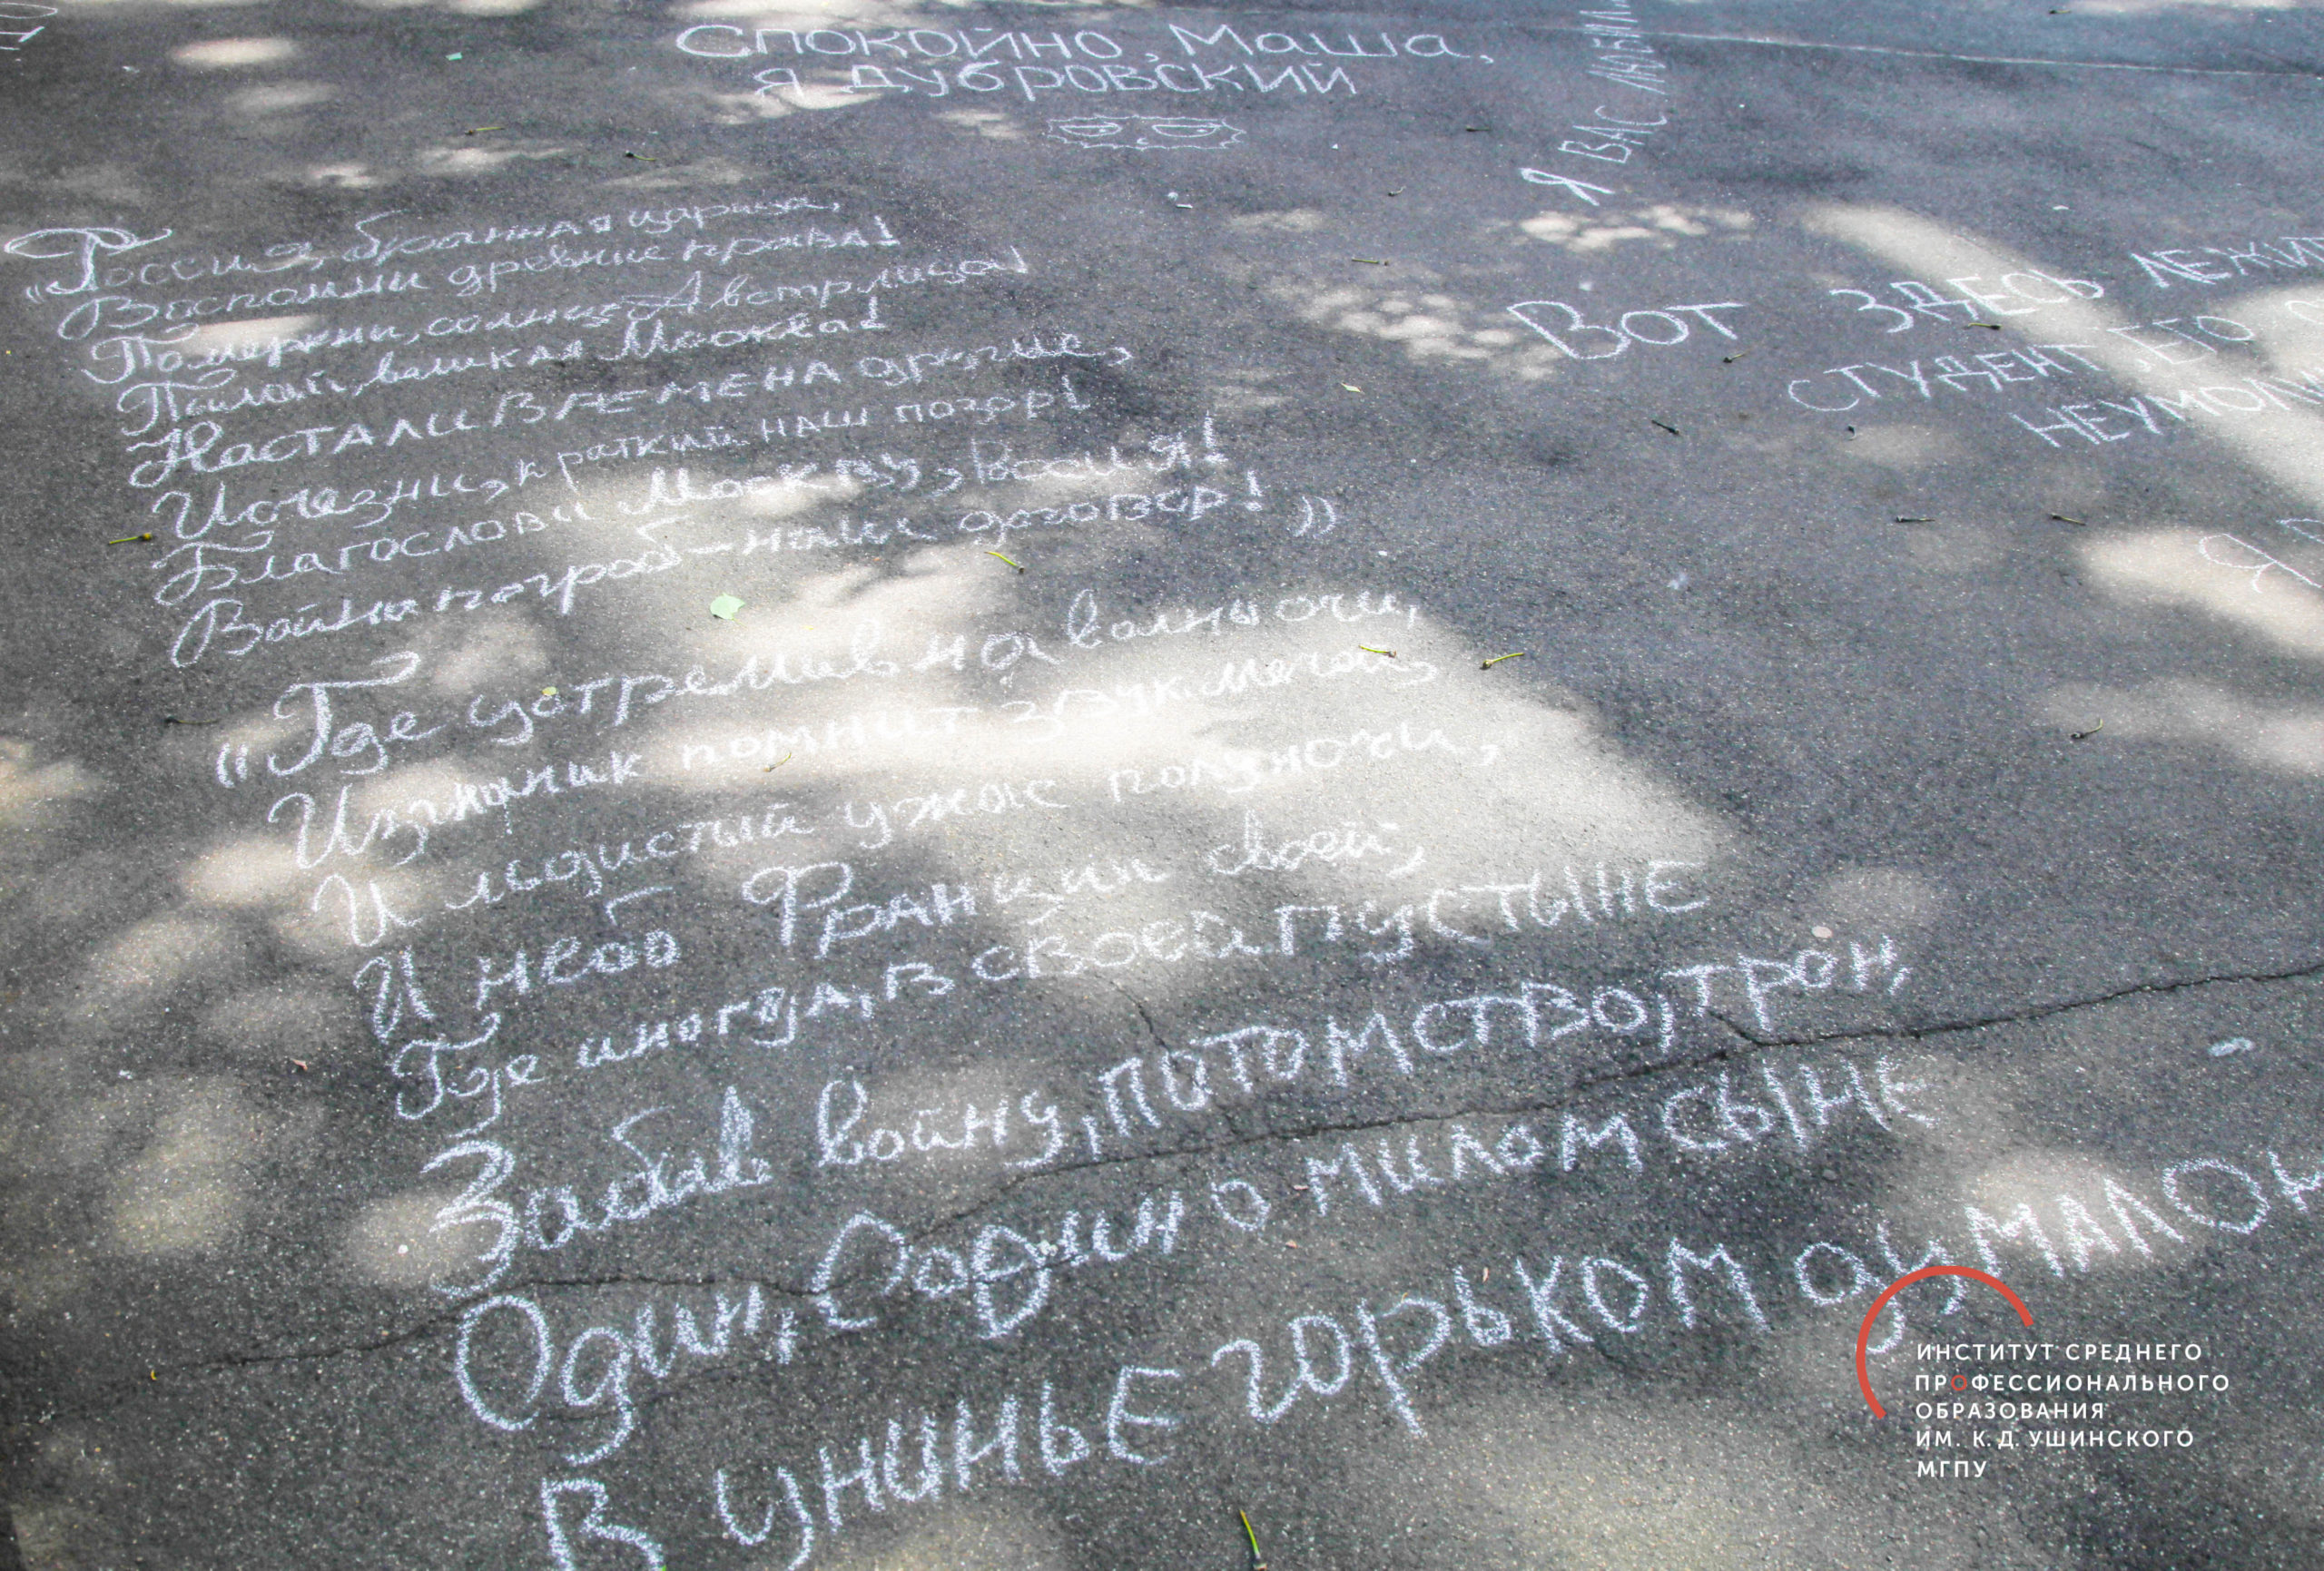 Спокойно, Маша,
я Дубровский
Я ВАС ЛЮБИЛ
«Россия, бранная царица,
Воспомни древние права!
Померкни, солнце Австерлица!
Пылай, великая Москва!
Настали времена другие,
Исчезни, краткий наш позор!
Благослови Москву, Россия!
Война по гроб – наш договор!»
Вот здесь лежит
студент, его
неумоли
«Где устремив на волны очи,
Изгнанник помнил звук мечей,
И льдистый ужас полуночи,
И небо Франции своей,
Где иногда, в своей пустыне
Забыв войну, потомство, трон,
Один, Один о милом сыне
В унынье горьком думал он
ИНСТИТУТ СРЕДНЕГО
ПРОФЕССИОНАЛЬНОГО
ОБРАЗОВАНИЯ
ИМ. К.Д. УШИНСКОГО
МГПУ